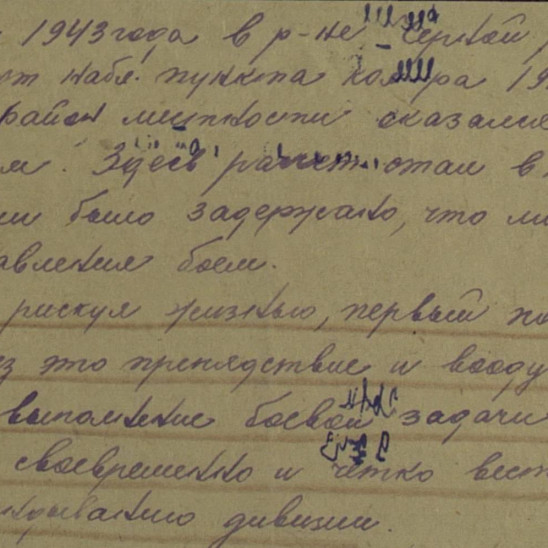 1943 года в р-не Черной
набл. пункта ко ра 19
район местности сказался
м. Здесь расчет отал в
ми было задержано, что ли
авления боем.
рискуя жизнью, первый по
ез это препядствие и вооду
выполнение боевой задачи
своевременно и четко вест
крыванию дивизии.